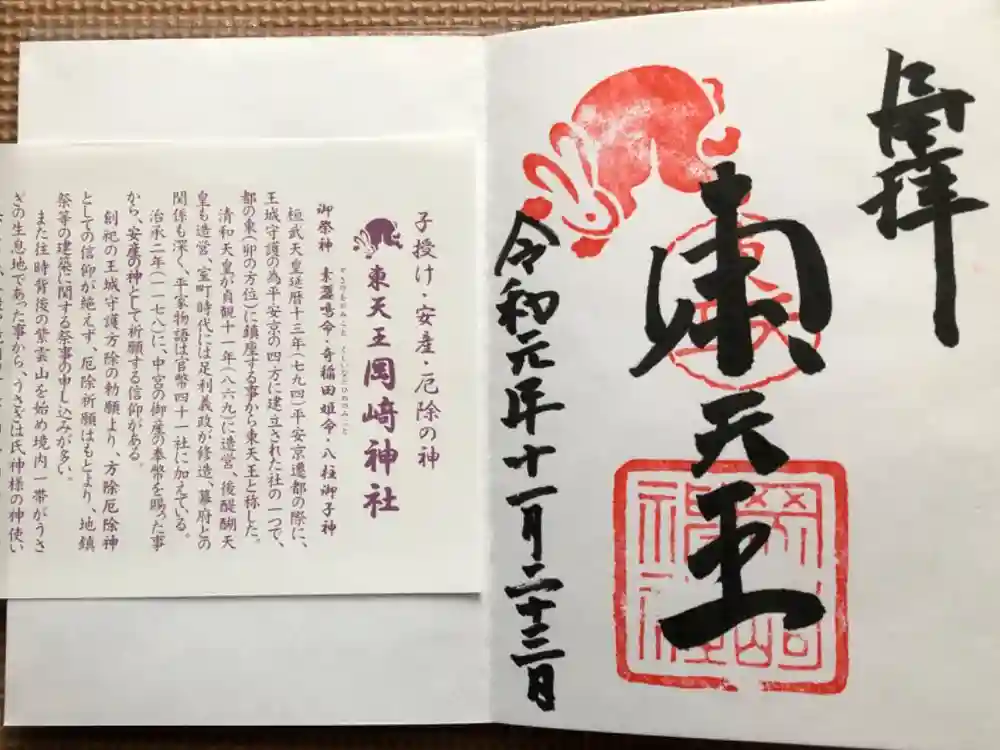 奉拝
東天王
令和元年十一月二十三日
岡崎神社
子授け・安産・厄除の神
東天王岡﨑神社
御祭神 素盞嗚命・奇稲田姫命・八柱御子神
すさのをのみこと くしいなだひめのみこと
桓武天皇延暦十三年(七九四)平安京遷都の際に、
王城守護の為平安京の四方に建立された社の一つで、
都の東(卯の方位)に鎮座する事から東天王と称した。
清和天皇が貞観十一年(八六九)に造営、後醍醐天
皇も造営、室町時代には足利義政が修造、幕府との
関係も深く、平家物語は官幣四十一社に加えている。
治承二年(一一七八)に、中宮の御産の奉幣を賜った事
から、安産の神として祈願する信仰がある。
創祀の王城守護方除の勅願より、方除厄除神
としての信仰が絶えず、厄除祈願はもとより、地鎮
祭等の建築に関する祭事の申し込みが多い。
また往時背後の紫雲山を始め境内一帯がうさ
ぎの生息地であった事から、うさぎは氏神様の神使い